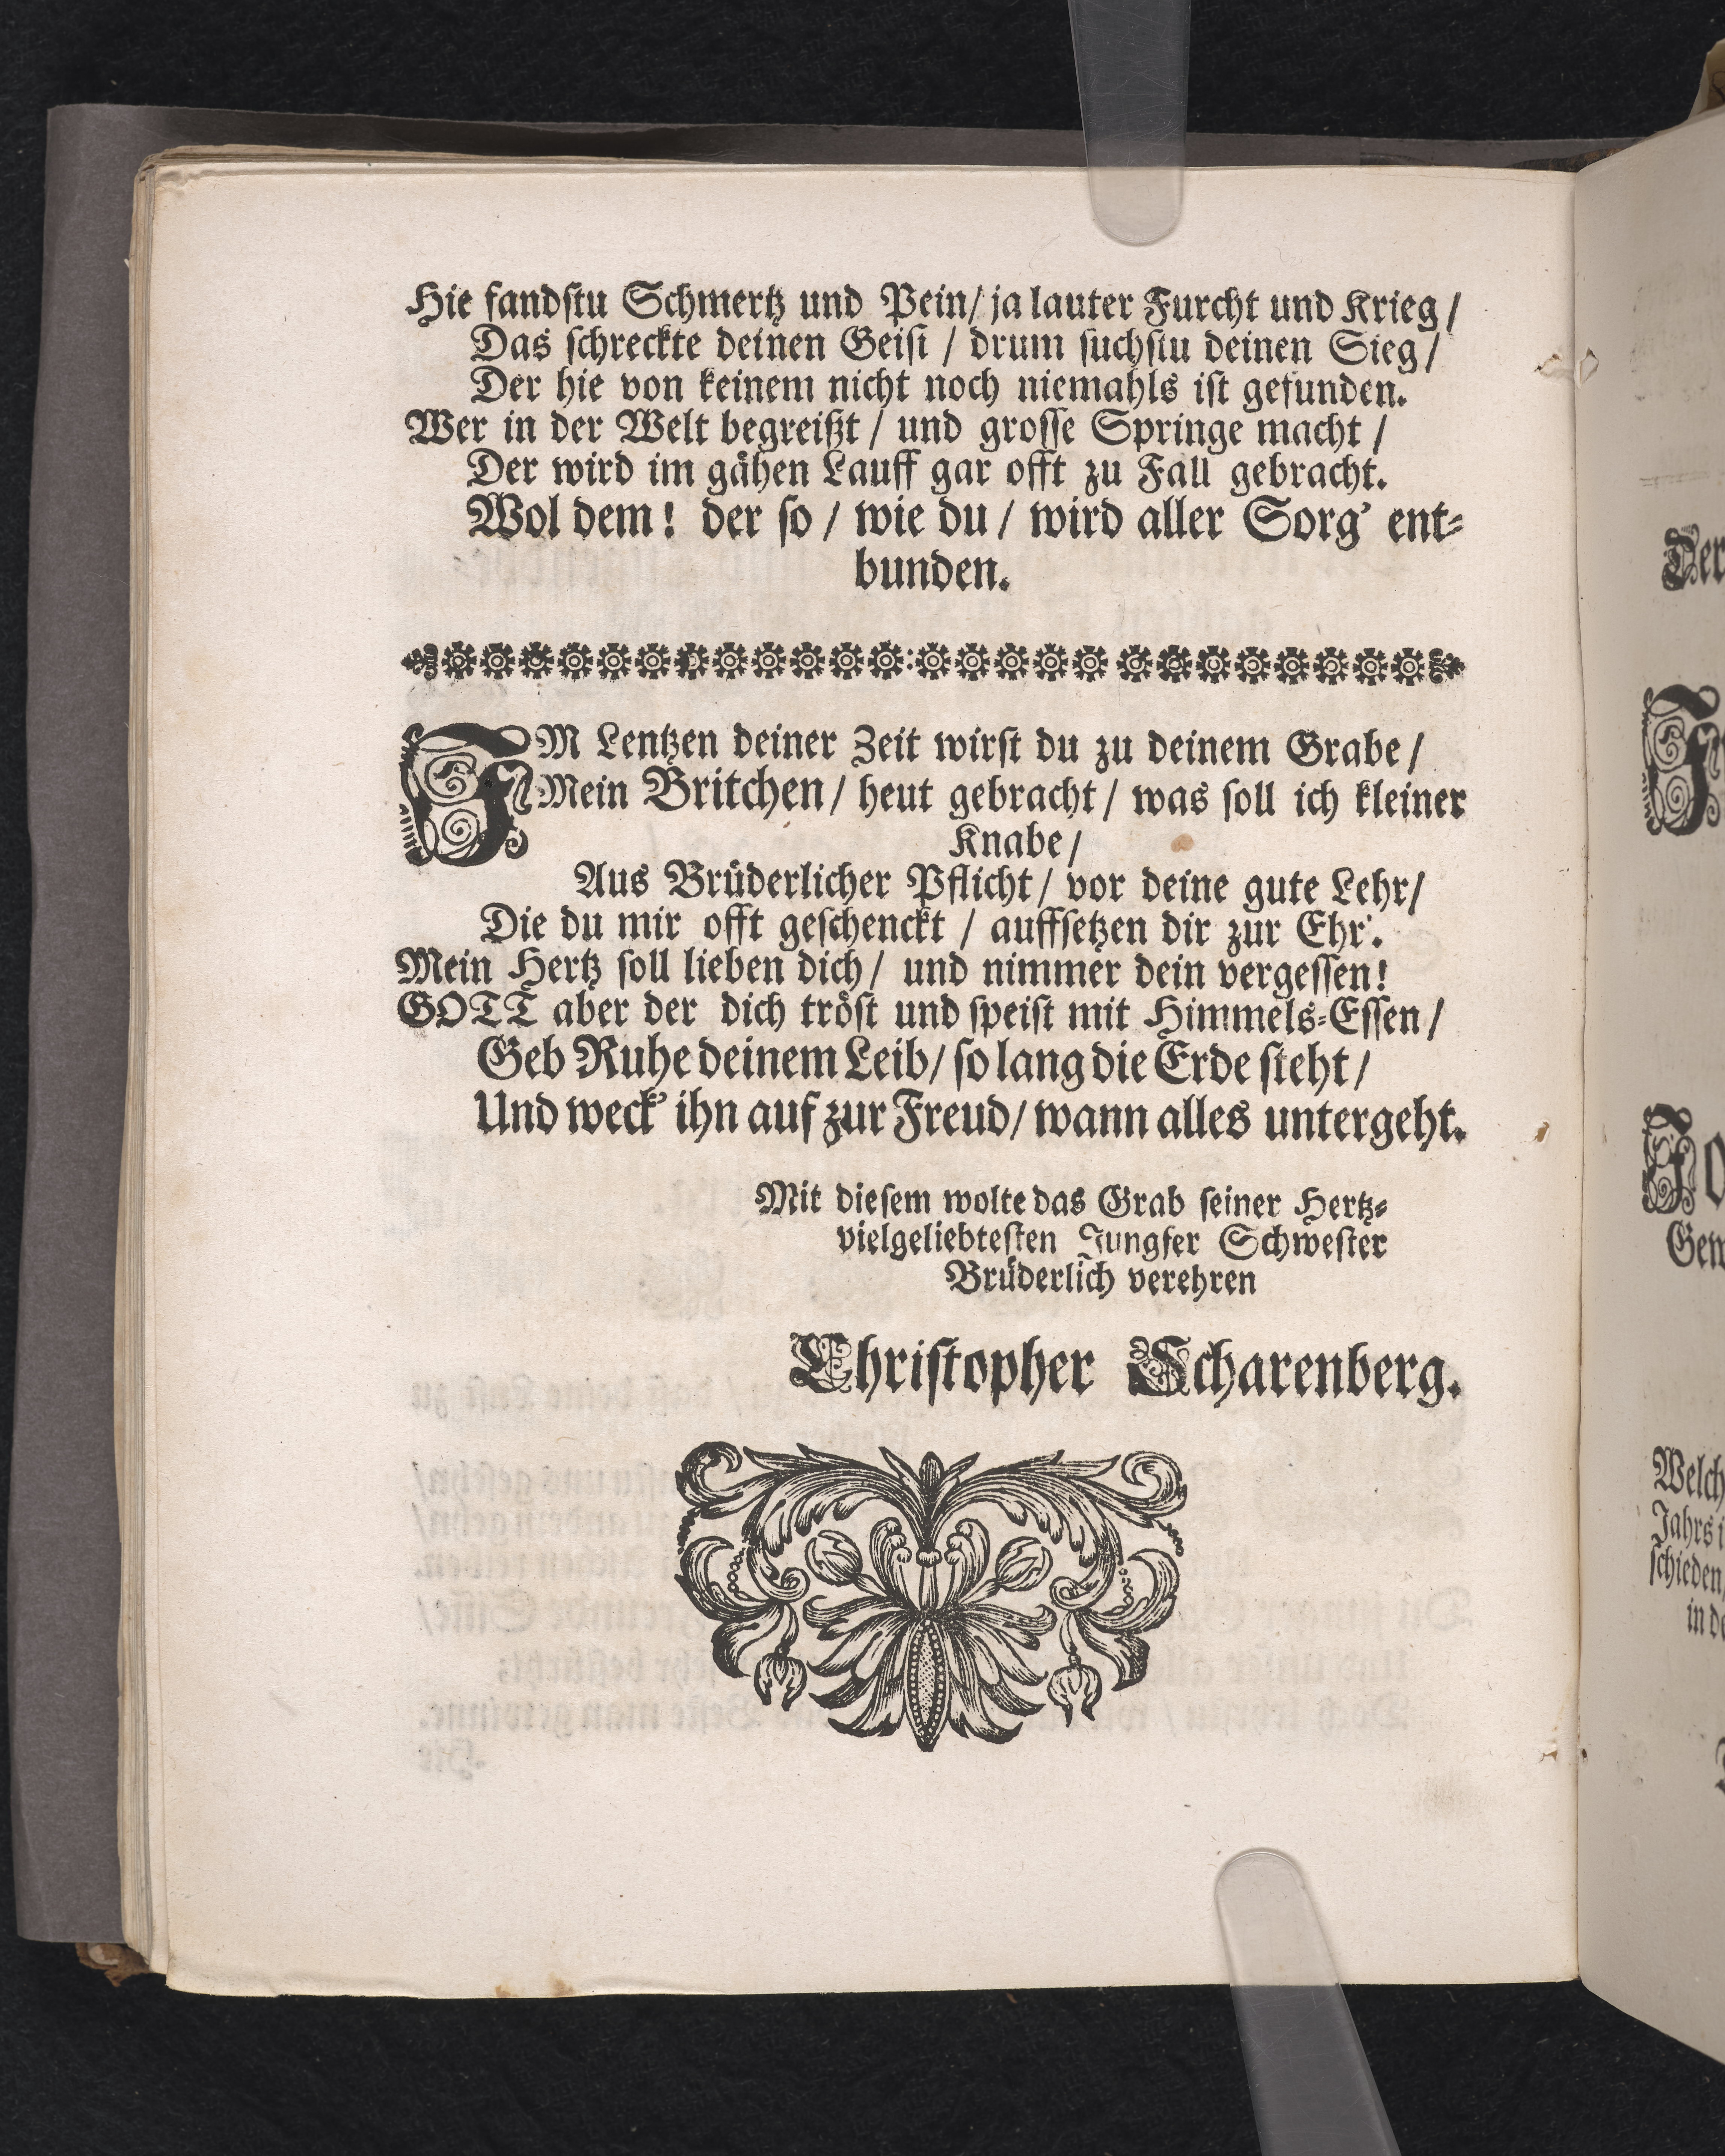 Hie fandstu Schmertz und Pein/ ja lauter Furcht und Krieg/
Das schreckte deinen Geist / drum suchstu deinen Sieg/
Der hie von keinem nicht noch niemahls ist gefunden.
Wer in der Welt begreißt / und grosse Springe macht /
Der wird im gähen Lauff gar offt zu Fall gebracht.
Wol dem! der so / wie du / wird aller Sorg' ent-
bunden.
IM Lentzen deiner Zeit wirst du zu deinem Grabe /
Mein Britchen / heut gebracht / was soll ich kleiner
Knabe /
Aus Brüderlicher Pflicht / vor deine gute Lehr/
Die du mir offt geschenckt / auffsetzen dir zur Ehr'.
Mein Hertz soll lieben dich / und nimmer dein vergessen!
GOTT aber der dich tröst und speist mit Himmels-Essen /
Geb Ruhe deinem Leib/ so lang die Erde steht /
Und weck' ihn auf zur Freud/ wann alles untergeht.
Mit diesem wolte das Grab seiner Hertz-
vielgeliebtesten Jungfer Schwester
Brüderlich verehren
Christopher Scharenberg.
Der
Gew
Welch
Jahrs i
schieden/
in de